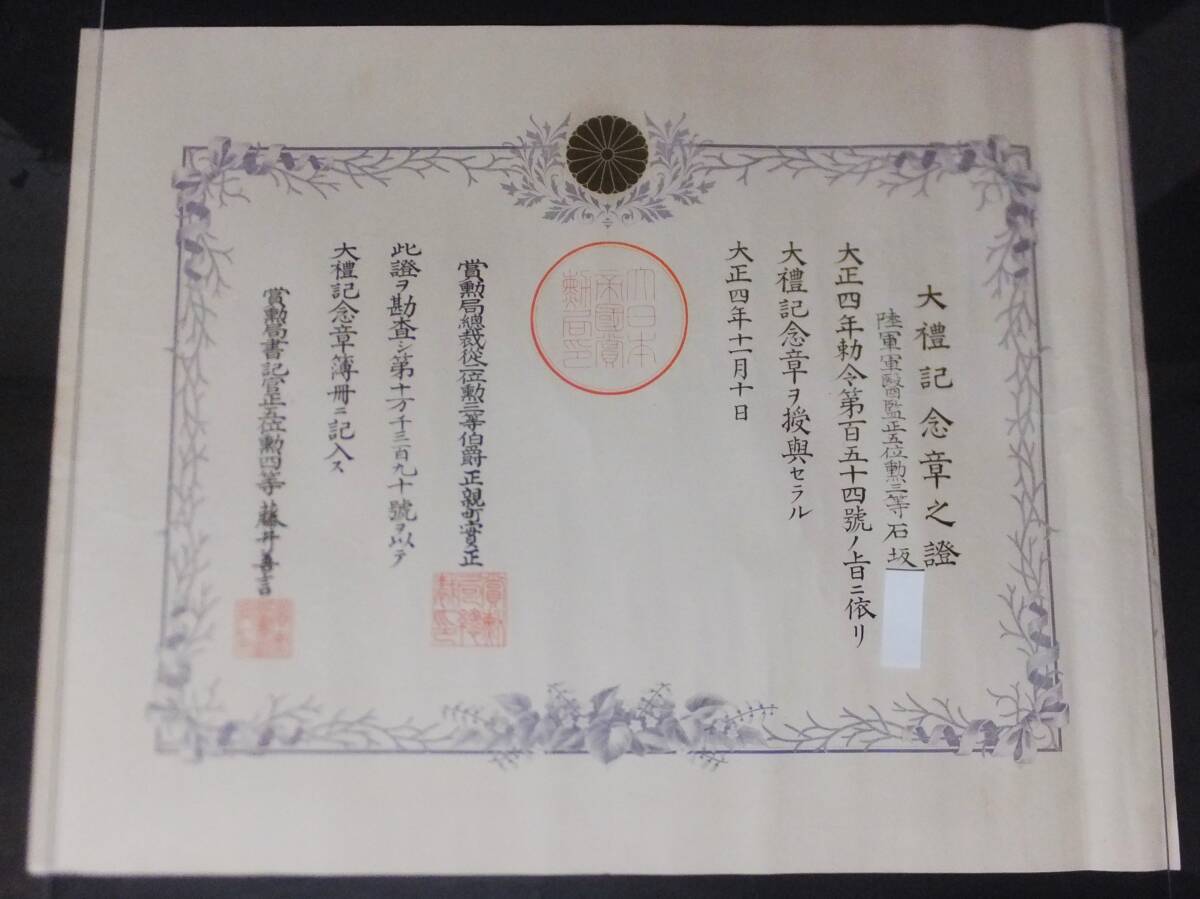 大禮記念章之證
陸軍軍醫監正五位勲三等石坂
大正四年勅令第百五十四號ノ上日ニ依リ
大禮記念章ヲ授與セラル
大正四年十一月十日
大日本帝國賞勲局印
賞勲局總裁從二位勲三等伯爵正親町實正
此證ヲ勘査シ第十万千三百九十號ヲ以テ
大禮記念章簿冊ニ記入ス
賞勲局書記官正五位勲四等藤井善言